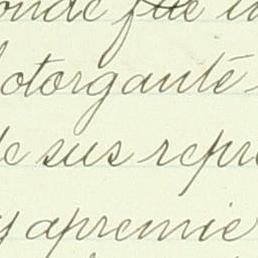 onde fue
otorganté
de sus repre
y apremie